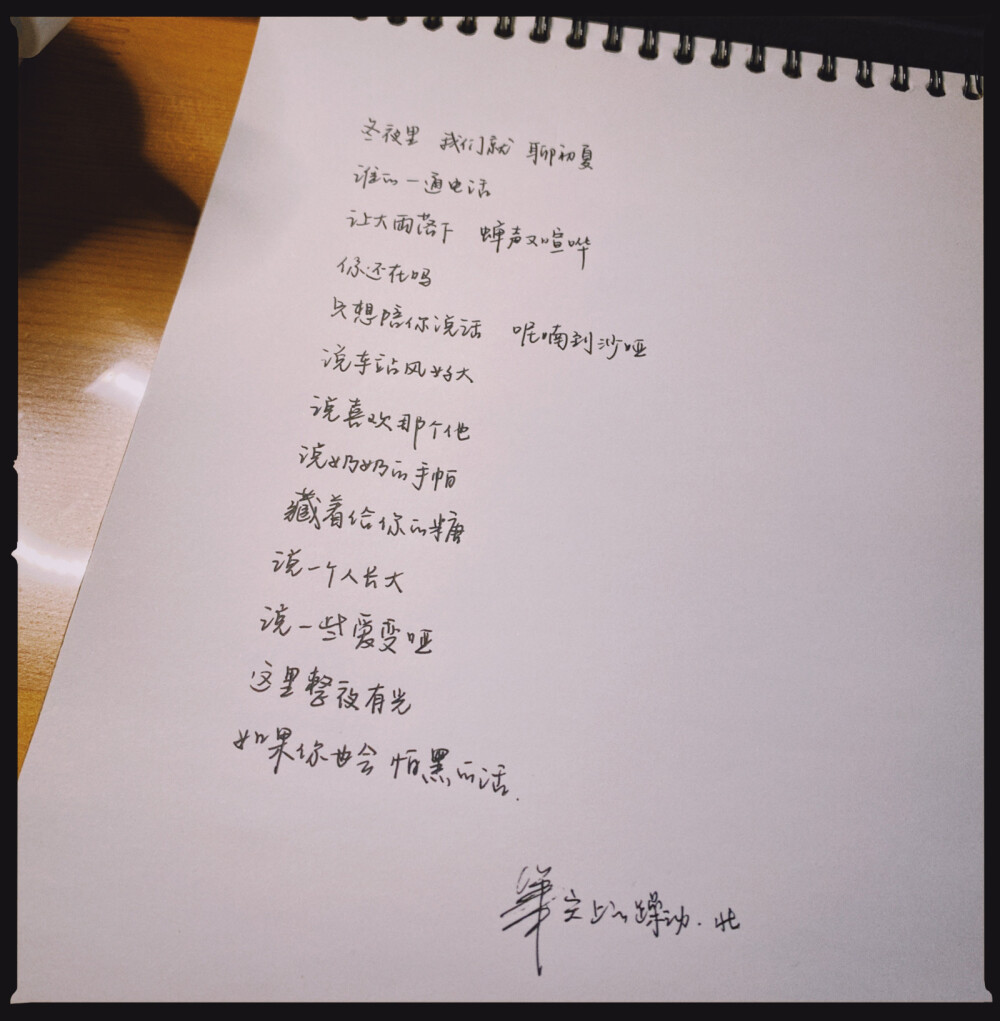 冬夜里 我们就 聊初夏
谁的一通电话
让大雨落下 蝉声又喧哗
你还在吗
只想陪你说话 呢喃到沙哑
说车站风好大
说喜欢那个他
说奶奶的手帕
藏着给你的糖
说一个人长大
说一些爱变哑
这里整夜有光
如果你也会 怕黑的话.
上的躁动.